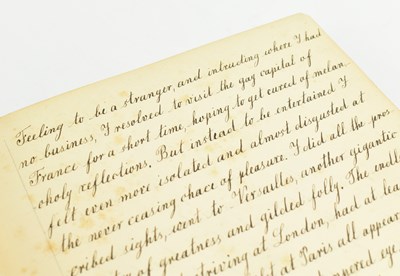 Feeling to be a stranger, and intruding where I had
no business, I resolved to visit the gay capital of
France for a short time, hoping to get cured of melan
choly reflections. But instead to be entertained I
felt even more isolated and almost disgusted at
the never ceasing chace of pleasure. I did all the pros
cribed sights, went to Versailles, another gigantic
of greatness and gilded folly. The endl
striving at London, had at lea
at Paris all appear
eye